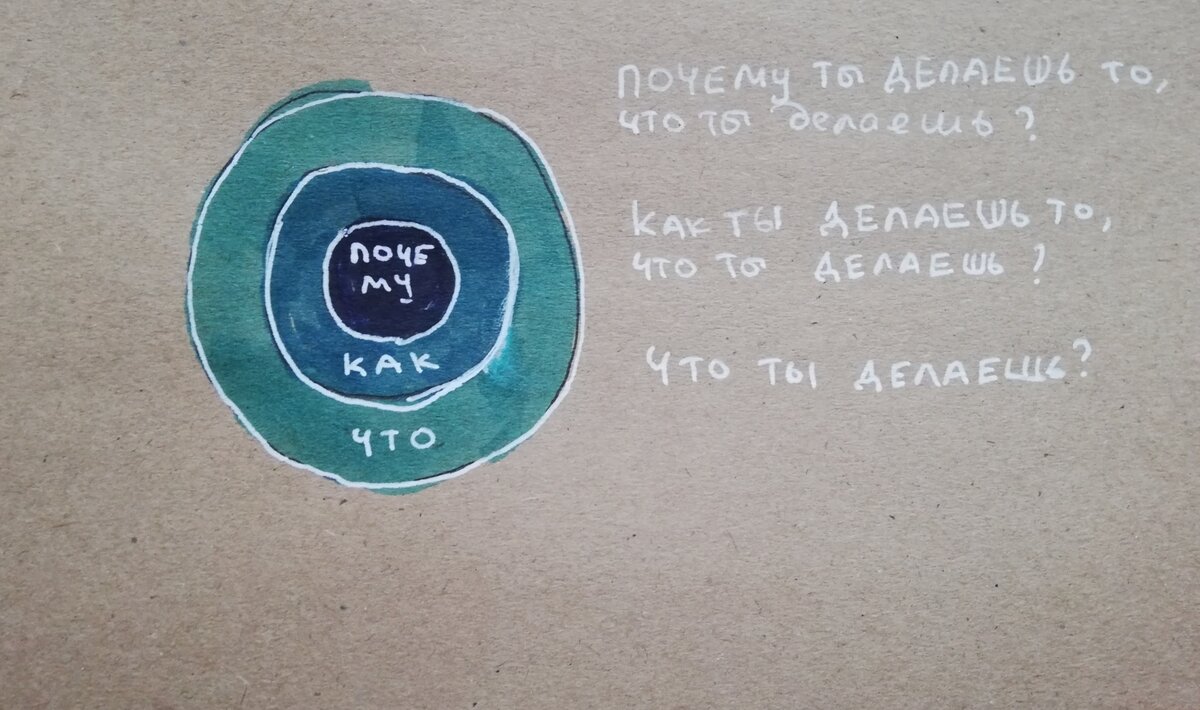 ПОЧЕ
МУ
КАК
ЧТО
ПОЧЕМУ ТЫ ДЕЛАЕШЬ ТО,
ЧТО ТЫ делаешь?
КАК ТЫ ДЕЛАЕШЬ ТО,
ЧТО ТЫ ДЕЛАЕШЬ?
ЧТО ТЫ ДЕЛАЕШЬ?